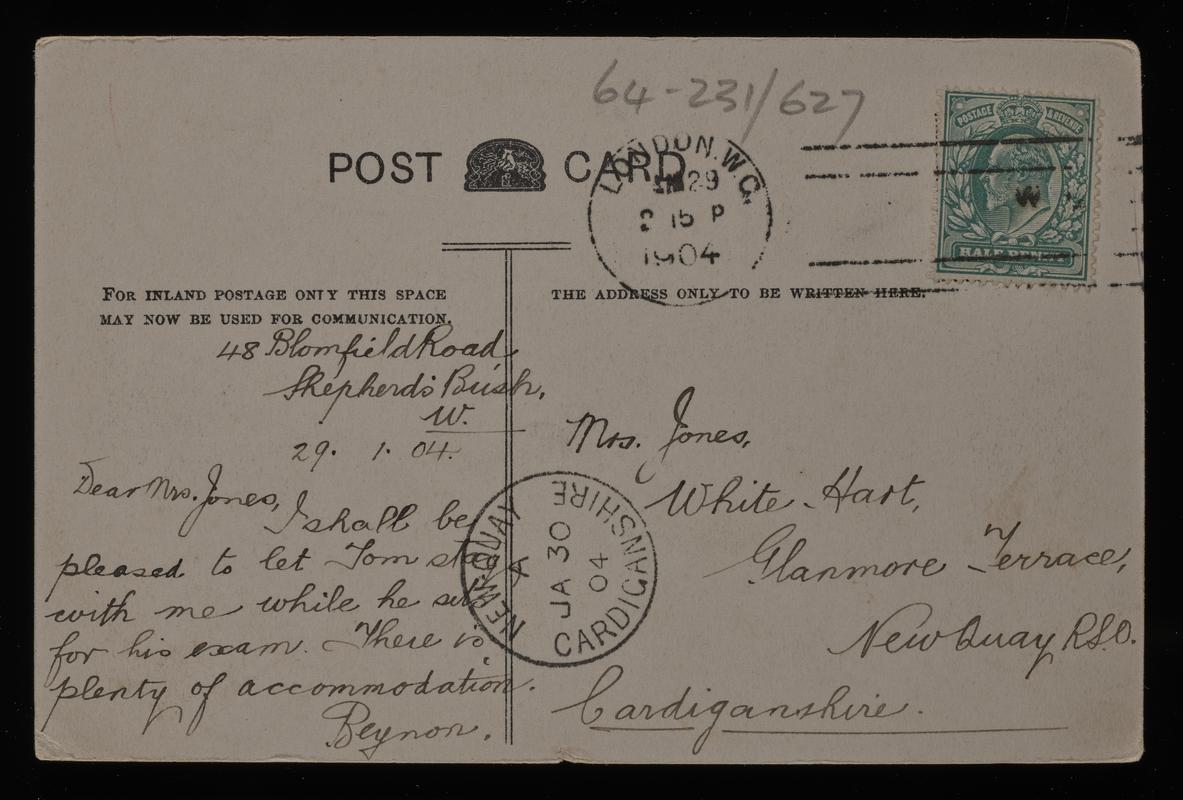 64-231/627
POST CARD
LONDON. W.C.
JA 29
2 15 P
1904
POSTAGE & REVENUE
HALF PENNY
FOR INLAND POSTAGE ONLY THIS SPACE
MAY NOW BE USED FOR COMMUNICATION.
THE ADDRESS ONLY TO BE WRITTEN HERE.
48 Blomfield Road
Shepherd's Bush,
W.
29. 1. 04.
Dear Mrs. Jones,
I shall be
pleased to let Tom stay
with me while he sits
for his exam. There is
plenty of accommodation.
Beynon.
NEW-QUAY
A
JA 30
04
CARDIGANSHIRE
Mrs. Jones,
White Hart,
Glanmore Terrace,
New Quay R.S.O.
Cardiganshire.